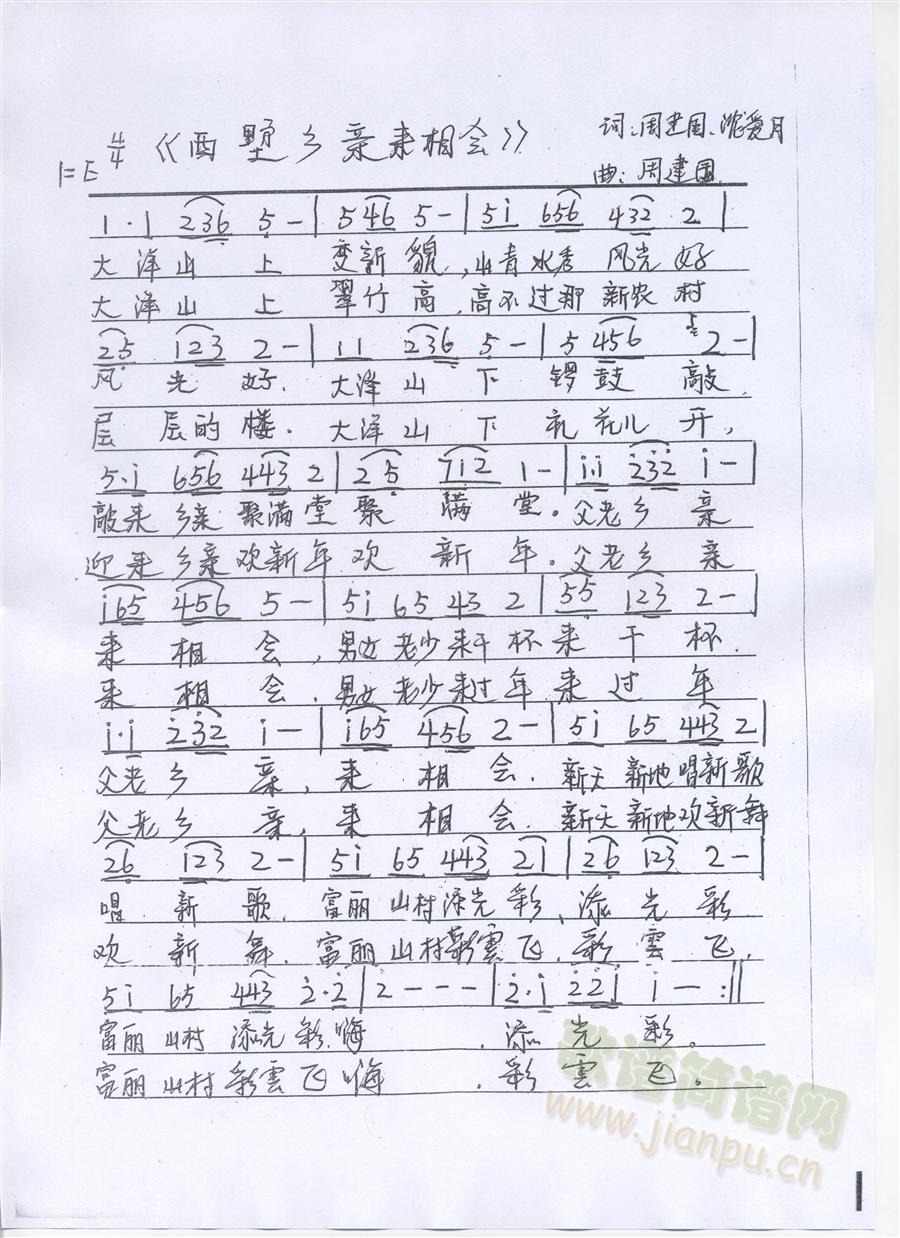 1=E 4/4 《西墅乡亲来相会》 词:周建国、沈爱月
曲:周建国
1·1 236 5 - | 5 46 5 - | 5i 656 432 2 |
大泽山上 变新貌,山青水秀 风光好
大泽山上 翠竹高,高不过那新农村
25 123 2 - | 11 236 5 - | 5 456 2 - |
风光好.大泽山下 锣鼓敲.
层层的楼.大泽山下 礼花儿开,
5·i 656 443 2 | 25 712 1 - | i·i 232 i - |
敲来乡亲聚满堂聚满堂。父老乡亲
迎来乡亲欢新年欢新年。父老乡亲
i65 456 5 - | 5i 65 43 2 | 55 123 2 - |
来相会,男女老少来干杯来干杯.
来相会.男女老少来过年来过年
i·i 232 i - | i65 456 2 - | 5i 65 443 2 |
父老乡亲,来相会.新天新地唱新歌
父老乡亲,来相会.新天新地欢新舞
26 123 2 - | 5i 65 443 21 | 26 123 2 - |
唱新歌.富丽山村添光彩、添光彩
欢新舞.富丽山村彩雲飞.彩雲飞,
5i 65 443 2·2 | 2 - - - | 2·i 22i i - :||
富丽山村添光彩.嗨.添光彩。
富丽山村彩雲飞嗨.彩雲飞。
歌谱简谱网
www.jianpu.cn